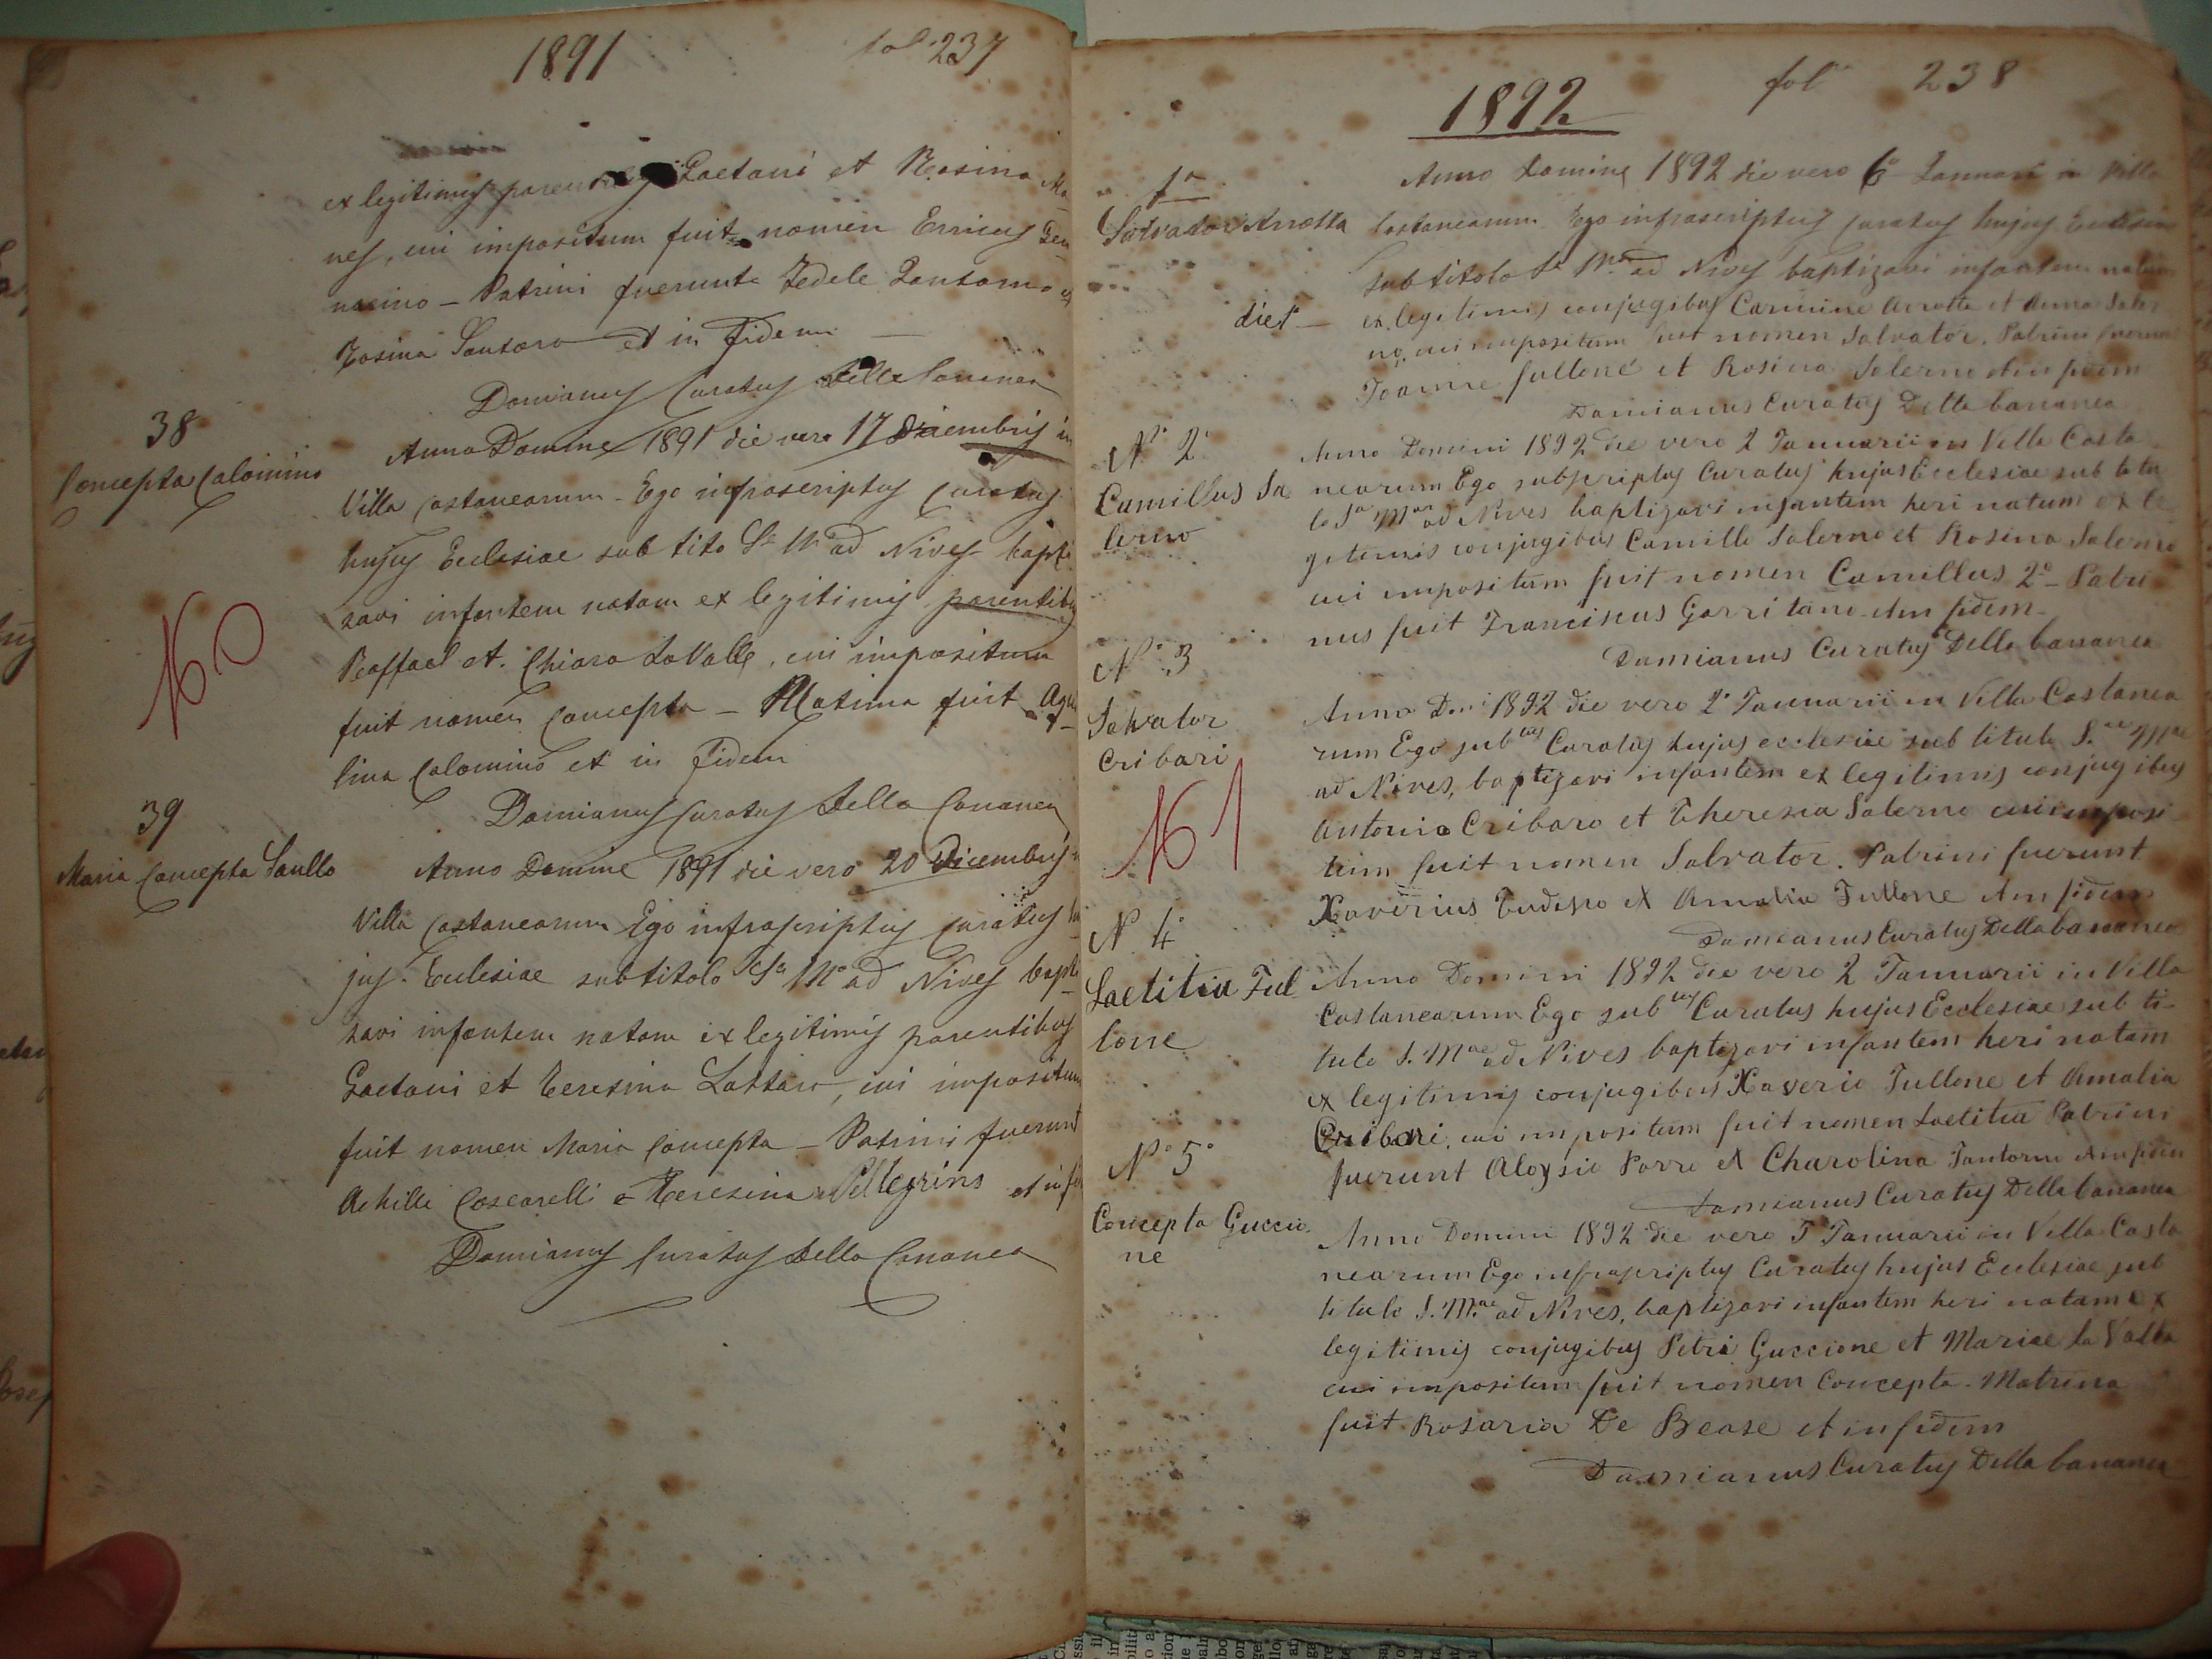 1891
fol. 237
ex legitimis parentibus Gaetani et Rosina Ma-
nes, cui impositum fuit nomen Erricus Gen-
narino – Patrini fuerunt Fedele Santoro et
Rosina Santoro et in fidem
Damianus Curatus Della Cananea
38
Concepta Calomino
Anno Domine 1891 die vero 17 Dicembris in
Villa Castanearum - Ego infrascriptus Curatus
hujus Ecclesiae sub tito Sa Ma ad Nives bapti-
zavi infantem natam ex legitimis parentibus
Raffael et. Chiara La Valle, cui impositum
fuit nomen Concepta – Matrina fuit Aqui-
lina Calomino et in fidem
Damianus Curatus Della Cananea
39
Maria Concepta Saullo
Anno Domine 1891 die vero 20 Dicembris
Villa Castanearum Ego infrascriptus Curatus hu-
jus. Ecclesiae sub titolo Sa Ma ad Nives bapti-
zavi infantem natam ex legitimis parentibus
Gaetani et Teresina Lattaro, cui impositum
fuit nomen Maria Concepta – Patrini fuerunt
Achille Coscarelli e Teresina Pellegrins et in fi
Damianus Curatus Della Cananea
1892
fol 238
1a
Salvador Arrotta
Anno Domine 1892 die vero 6 Iannari in Villa
Castanearum Ego infrascriptus Curatus hujus Ecclesiae
sub titolo Sa Ma ad Nives baptizavi infantem natum
ex legitimis conjugibus Carmine Arrotta et Anna Saler
no, cui impositum fuit nomen Salvator. Patrini fuerunt
Joanne Fullone et Rosina Salerno et in fidem
Damianus Curatus Della Cananea
N° 2°
Camillus Sa
lerno
Anno Domini 1892 die vero 2 Januarii in Villa Casta
nearum Ego subscriptus Curatus hujus Ecclesiae sub titu
lo Sae Mae ad Nives baptizavi infantem heri natum ex le
gitimis conjugibus Camillo Salerno et Rosina Salerno
cui impositum fuit nomen Camillus 2° – Patri
nus fuit Franciscus Garritano et in fidem.
Damianus Curatus Della Cananea
N° 3
Salvator
Cribari
Anno Dni 1892 die vero 2° Januarii in Villa Castanea
rum Ego subtus Curatus hujus ecclesiae sub titulo S.ae Mae
ad Nives, baptizavi infantem ex legitimis conjugibus
Antonio Cribaro et Theresia Salerno cui imposi
tum fuit nomen Salvator. Patrini fuerunt
Xaverius et Amalia Fullone et in fidem
Damianus Curatus Della Cananea
N° 4°
Laetitia Ful
lone
Anno Domini 1892 die vero 2 Januarii in Villa
Castanearum Ego subtus Curatus hujus Ecclesiae sub ti-
tulo S. Mae ad Nives baptizavi infantem heri natam
ex legitimis conjugibus Xaverio Fullone et Amalia
Cribari, cui impositum fuit nomen Laetitia Patrini
fuerunt Aloysio Porro et Charolina Santoro et in fidem
Damianus Curatus Della Cananea
N° 5°
Concepta Guccio
ne
Anno Domini 1892 die vero 5 Januarii in Villa Casta
nearum Ego infrascriptus Curatus hujus Ecclesiae sub
titulo S. Mae ad Nives, baptizavi infantem heri natam ex
legitimis conjugibus Petri Guccione et Mariae La Valle
cui impositum fuit nomen Concepta. Matrina
fuit Rosaria De Bease et in fidem
Damianus Curatus Della Cananea